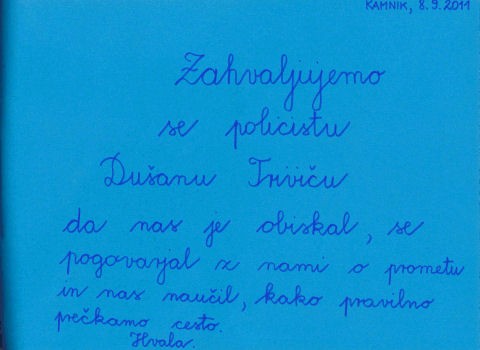 KAMNIK, 8.9.2011
Zahvaljujemo
se policistu
Dušanu Triviču
da nas je obiskal, se
pogovarjal z nami o prometu
in nas naučil, kako pravilno
prečkamo cesto.
Hvala.